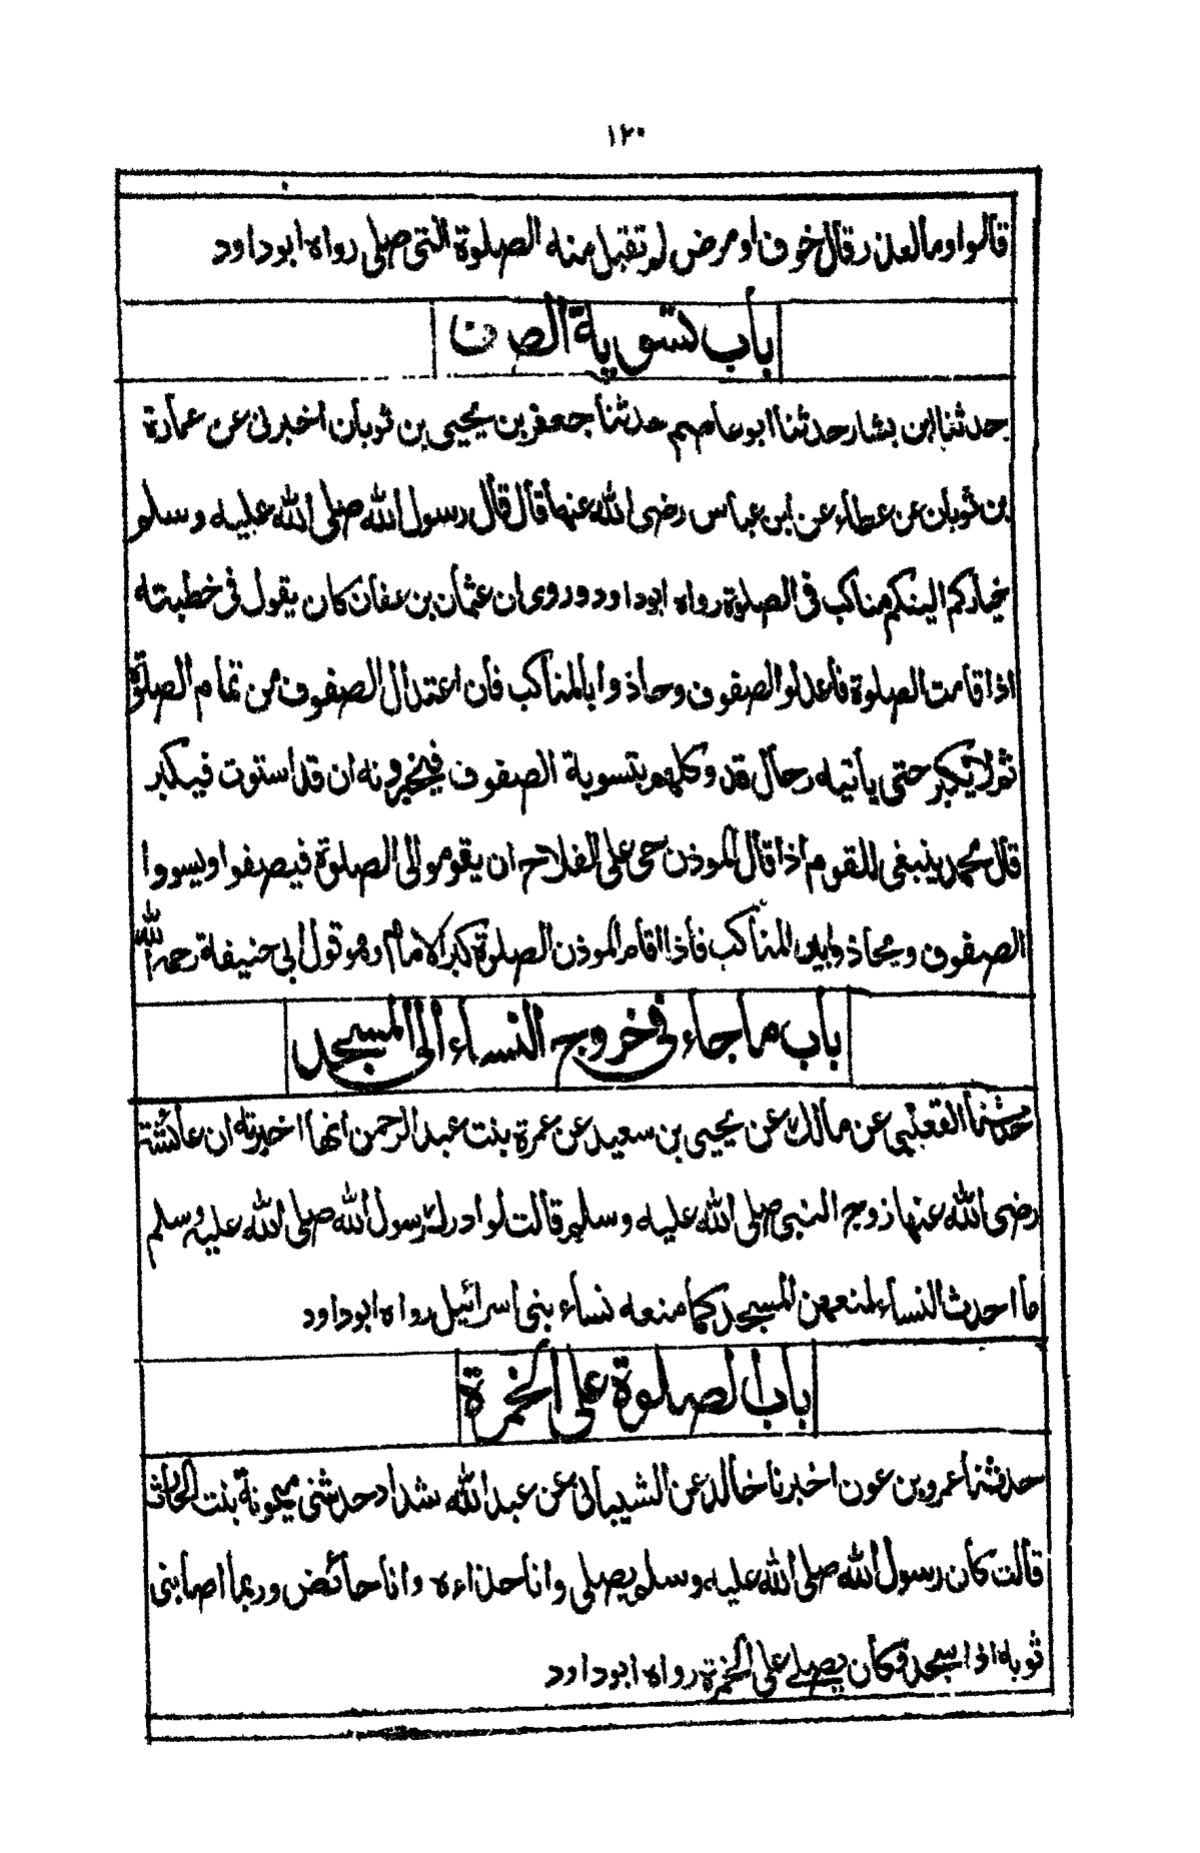 ١٢٠
قالوا وما العذر قال خوف او مرض لم تقبل منه الصلوة التى صلى رواه ابوداود
باب تسوية الصف
حدثنا ابن بشار حدثنا ابو عاصم حدثنا جعفر بن يحيى بن ثوبان اخبرنى عن عمارة
بن ثوبان عن عطاء عن ابن عباس رضى الله عنهما قال قال رسول الله صلى الله عليه وسلم
خياركم الينكم مناكب فى الصلوة رواه ابوداود وروى ان عثمان بن عفان كان يقول فى خطبته
اذا قامت الصلوة فاعدلو الصفوف وحاذوا بالمناكب فان اعتدال الصفوف من تمام الصلوة
ثم لا يكبر حتى ياتيه رجال قد وكلهم بتسوية الصفوف فيخبرونه ان قد استوت فيكبر
قال محمد ينبغى للقوم اذا قال الموذن حى على الفلاح ان يقومو الى الصلوة فيصفوا ويسووا
الصفوف ويحاذوا بين المناكب فاذا اقام الموذن الصلوة كبر الامام وهو قول ابى حنيفة رحمه الله
باب ما جاء فى خروج النساء الى المسجد
حدثنا القعنبى عن مالك عن يحيى بن سعيد عن عمرة بنت عبد الرحمن انها اخبرته ان عائشة
رضى الله عنها زوج النبى صلى الله عليه وسلم قالت لو ادرك رسول الله صلى الله عليه وسلم
ما احدث النساء لمنعهن المسجد كما منعه نساء بنى اسرائيل رواه ابوداود
باب الصلوة على الخمرة
حدثنا عمرو بن عون اخبرنا خالد عن الشيبانى عن عبد الله شداد حدثنى ميمونة بنت الحارث
قالت كان رسول الله صلى الله عليه وسلم يصلى وانا حذاءه وانا حائض وربما اصابنى
ثوبه اذا سجد وكان يصلى على الخمرة رواه ابوداود